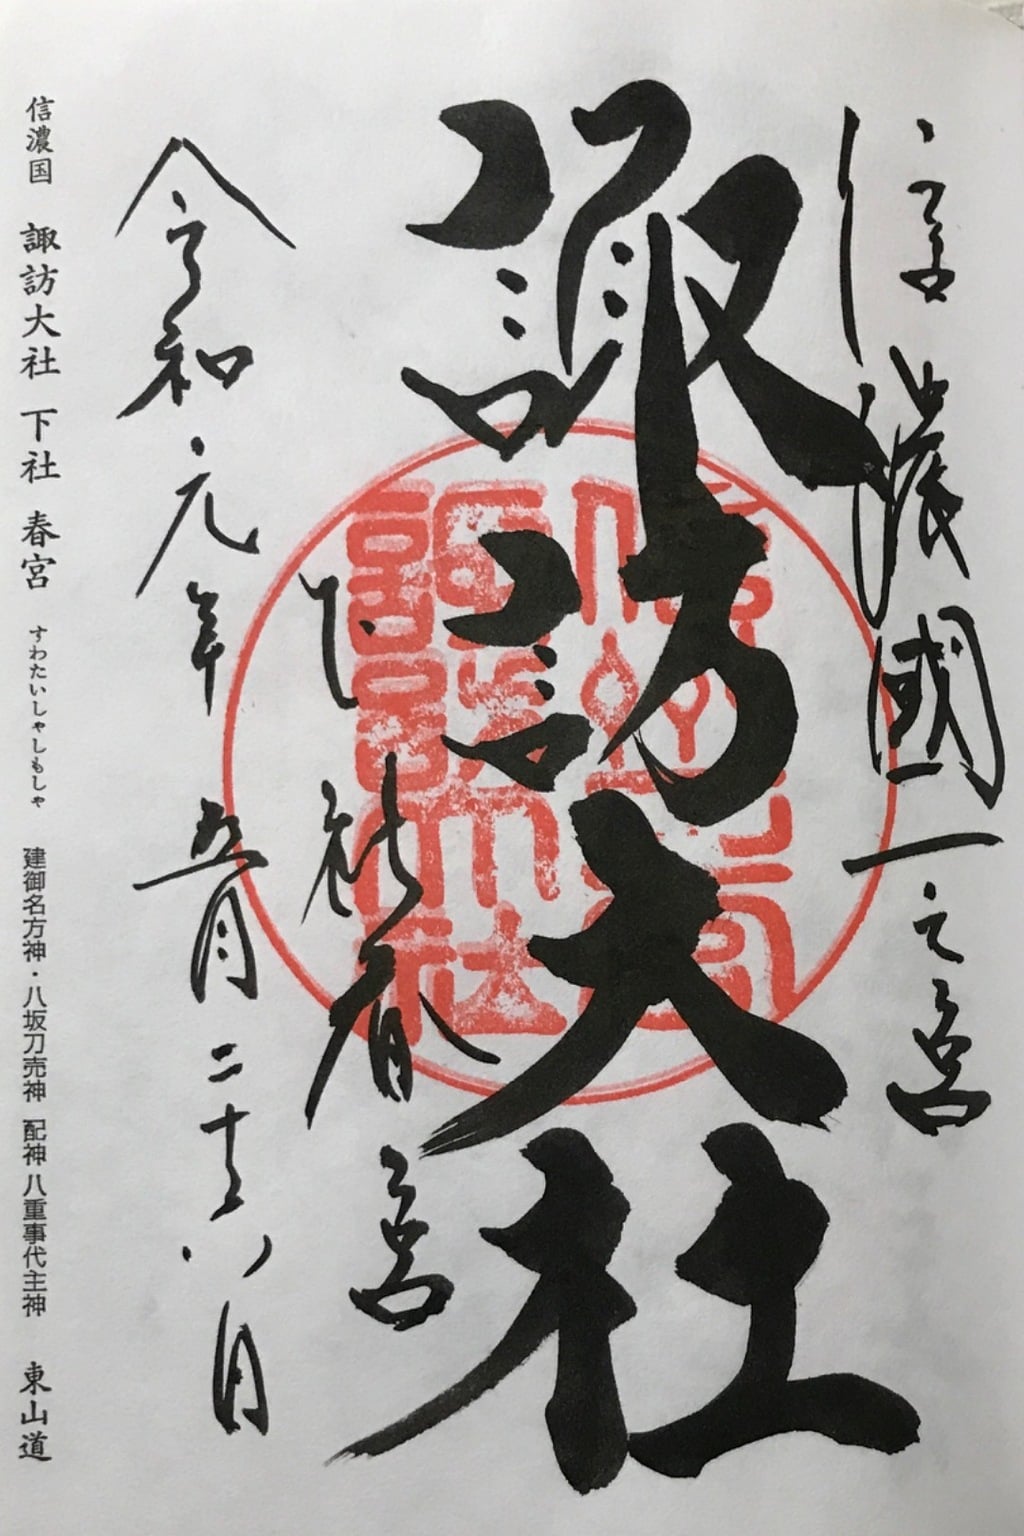 信濃國一之宮
諏訪大社
下社春宮
令和元年五月二十六日
信濃国 諏訪大社 下社 春宮 すわたいしゃしもしゃ 建御名方神・八坂刀売神 配神 八重事代主神 東山道